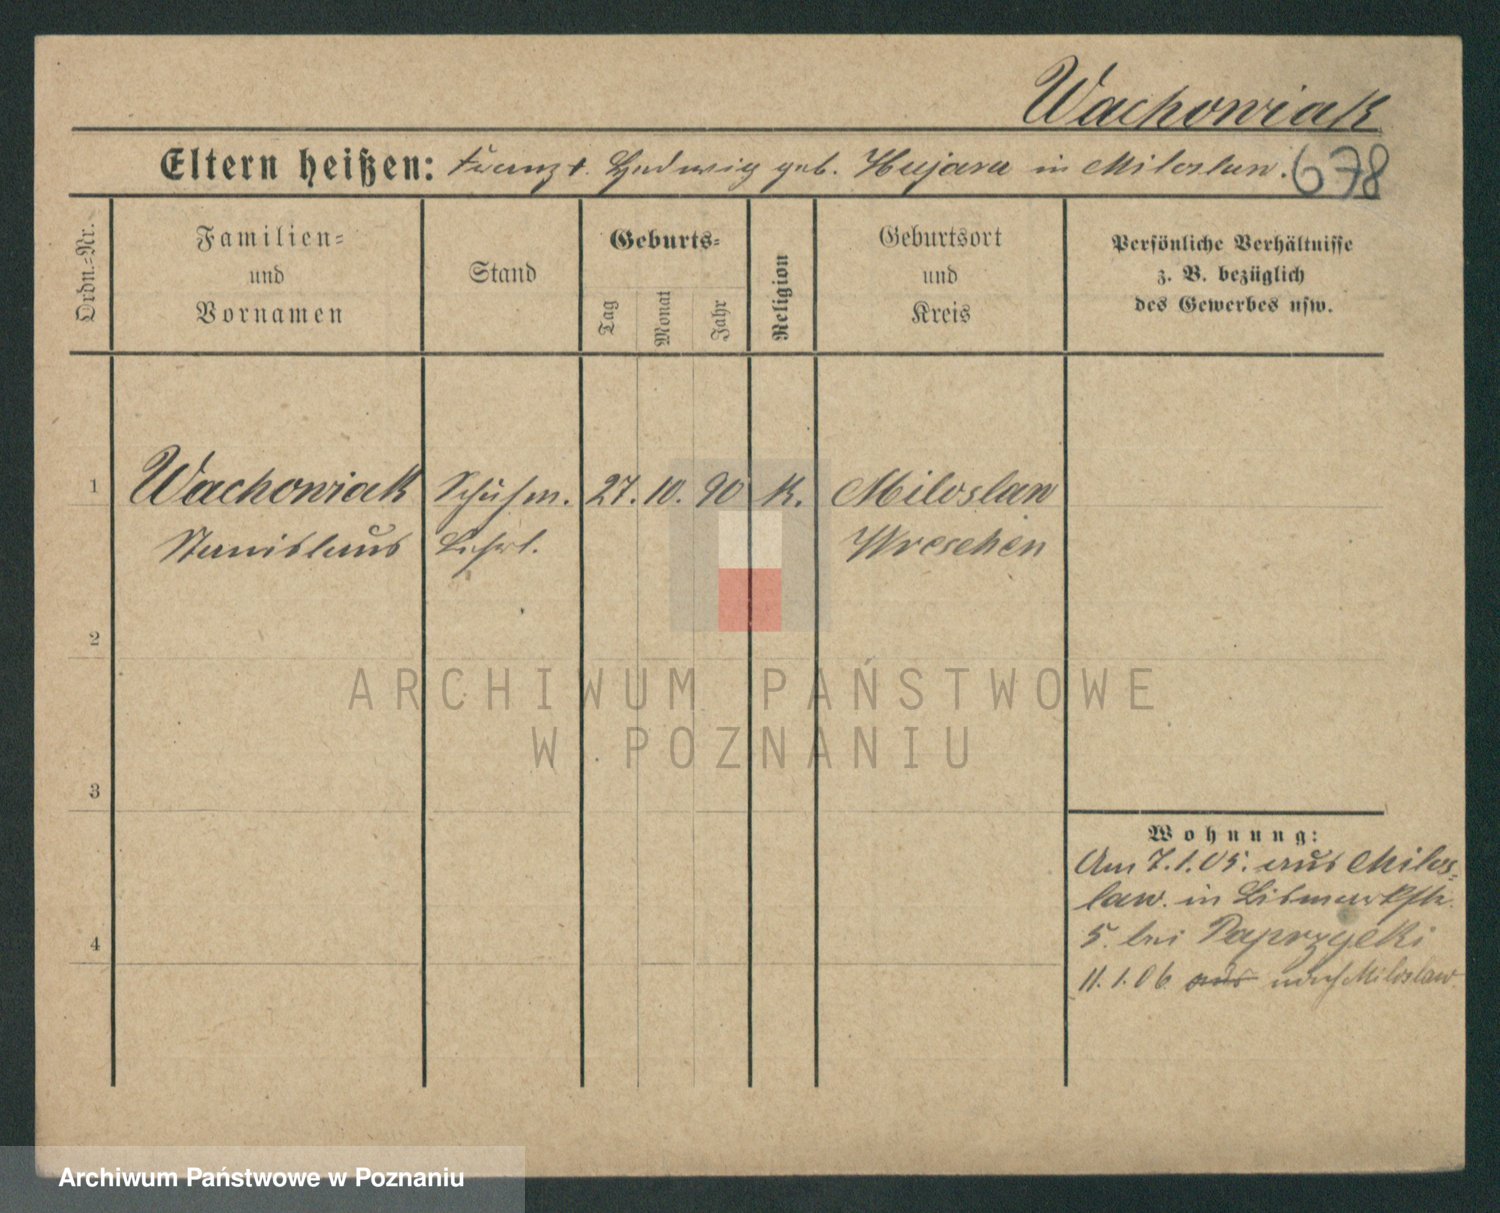 Wachowiak
Eltern heißen: Franz † Hedwig geb. Hujara in Miloslaw.
678
Ordn.-Nr.
Familien- und Vornamen
Stand
Geburts-
Tag
Monat
Jahr
Religion
Geburtsort und Kreis
Persönliche Verhältnisse z. B. bezüglich des Gewerbes usw.
1 Wachowiak Schuhm. 27. 10. 90 K. Miloslaw
Stanislaus Lehrl. Wreschen
2
ARCHIWUM PAŃSTWOWE
W POZNANIU
3
Wohnung:
Am 7.1.05. aus Milos-
law. in Bismarkstr.
5. bei Paprzycki
4
11.1.06 aus nach Miloslaw.
Archiwum Państwowe w Poznaniu